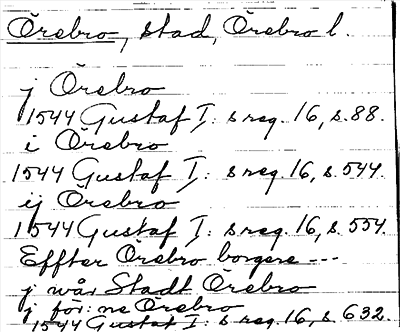 Örebro, stad, Örebro l.
j Örebro
1544 Gustaf I: s reg. 16, s. 88.
i Örebro
1544 Gustaf I: s reg. 16, s. 544.
ij Örebro
1544 Gustaf I: s reg. 16, s. 554.
Effter Örebro borgere ---
j wår Stadt Örebro
j för: ne Örebro
1544 Gustaf I: s reg. 16, s. 632.